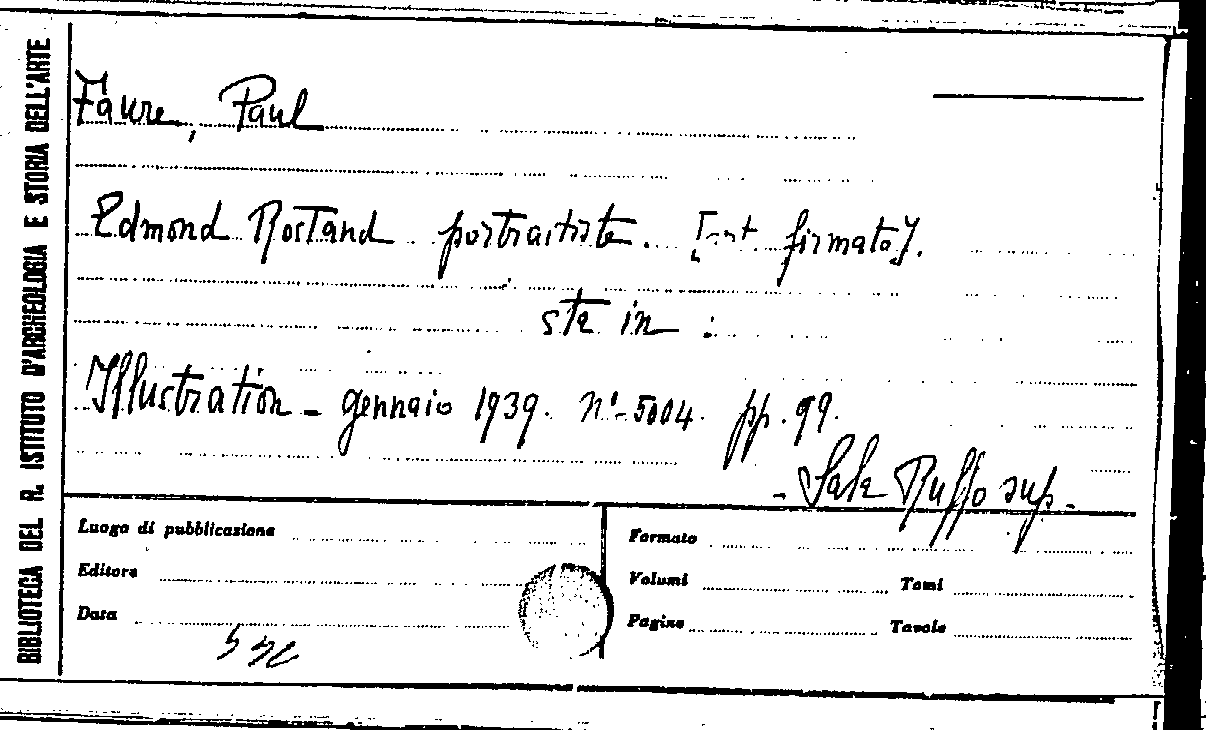 BIBLIOTECA DEL R. ISTITUTO D'ARCHEOLOGIA E STORIA DELL'ARTE
Faure, Paul
Edmond Rostand portraitiste. [art. firmato].
sta in :
Illustration - gennaio 1939. n°-5004. pp. 99.
- Sala Ruffo sup.
Luogo di pubblicazione
Editore
Data
Formato
Volumi Tomi
Pagine Tavole